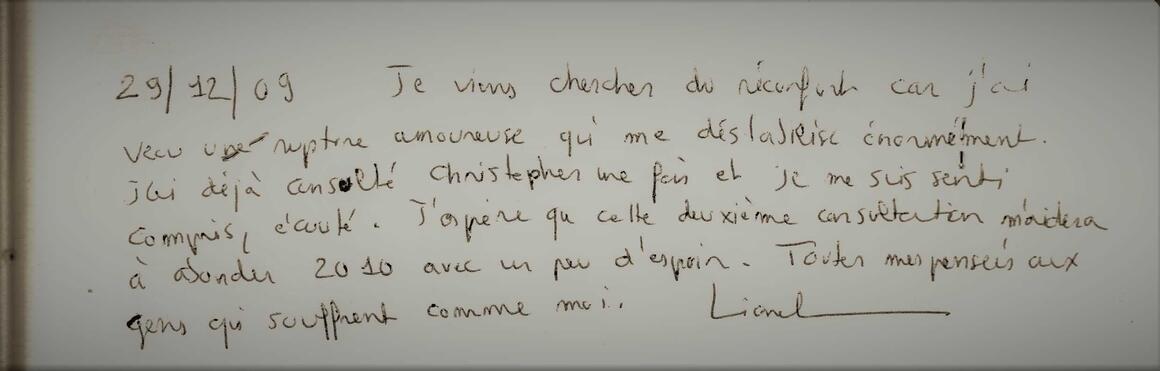 29/12/09 Je viens chercher du réconfort car j'ai
vécu une rupture amoureuse qui me déstabilise énormément.
j'ai déjà consulté Christopher une fois et je me suis senti
compris, écouté. J'espère que cette deuxième consultation m'aidera
à abonder 2010 avec un peu d'espoir. Toutes mes pensées aux
gens qui souffrent comme moi. Lionel